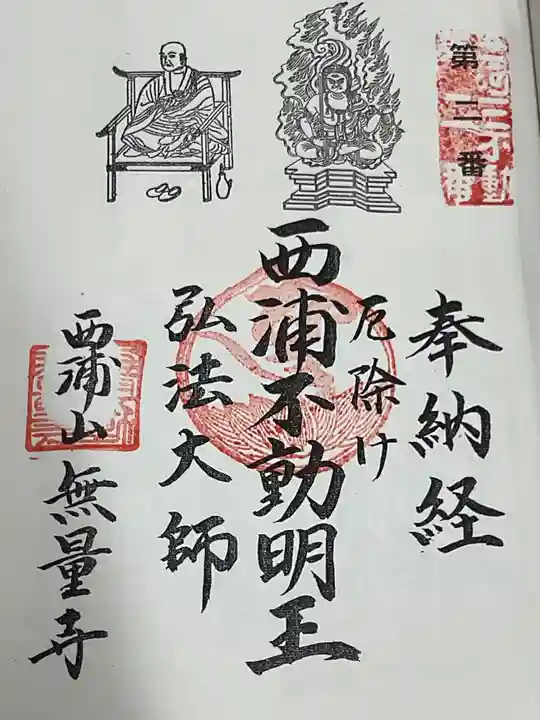 第二番
奉納経
厄除け
西浦不動明王
弘法大師
西浦山無量寺